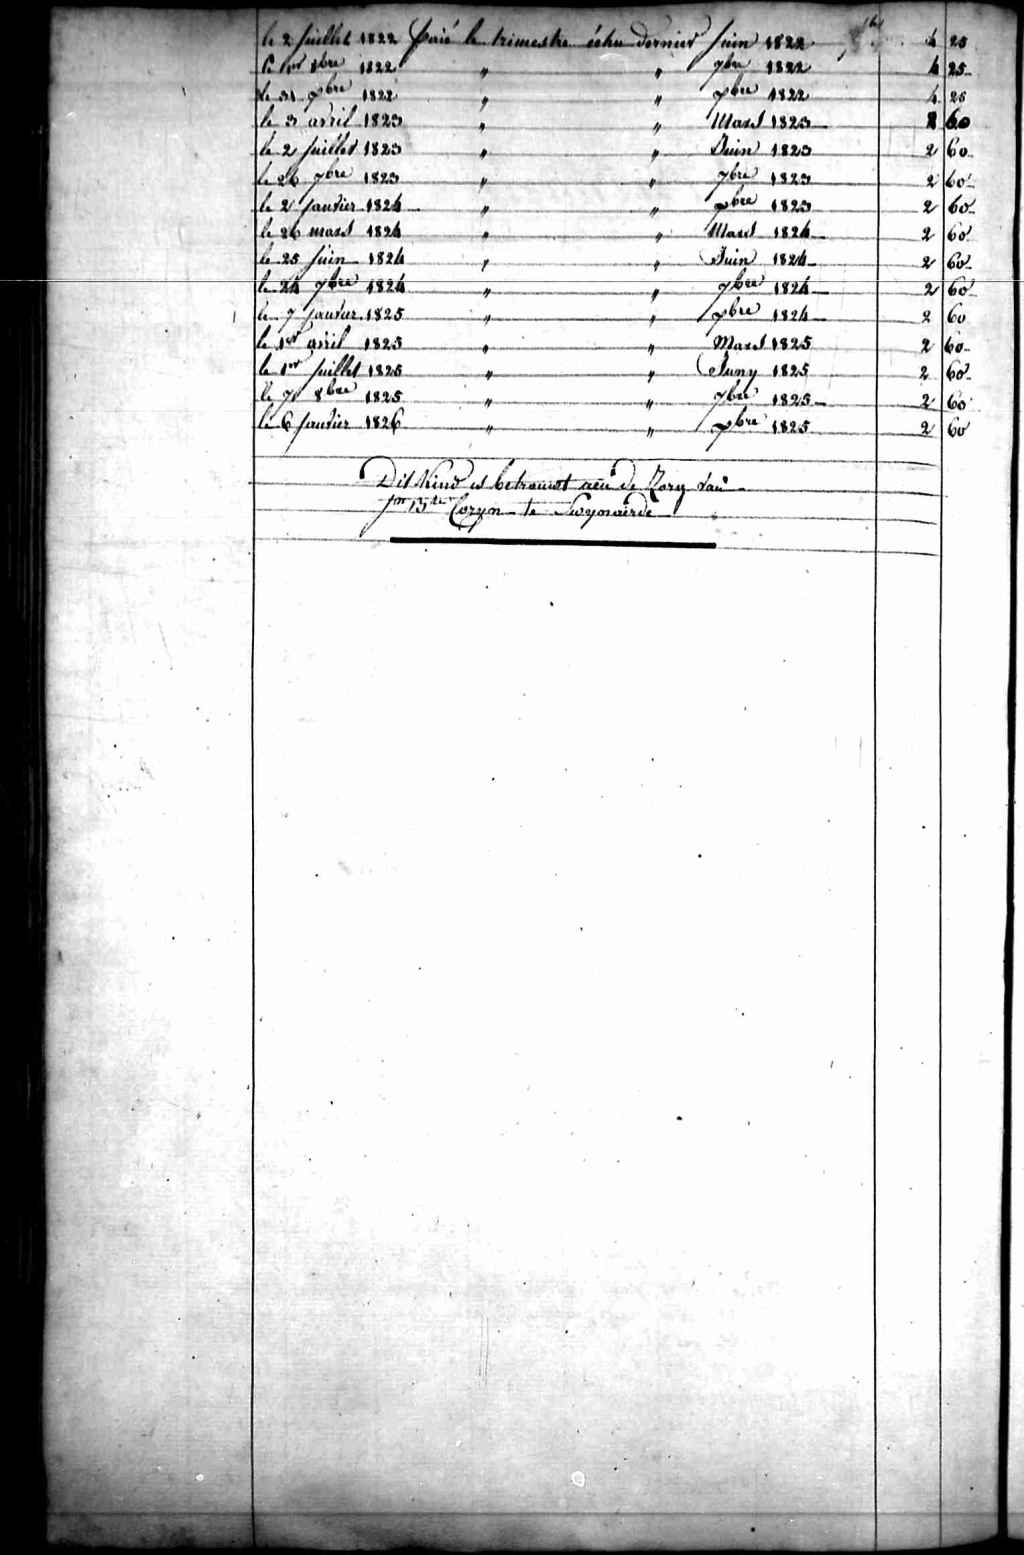 le 2 juillet 1822 payé le trimestre échu dernier juin 1822 4 25
le 1er 8bre 1822 " " 7bre 1822 4 25
le 31 xbre 1822 " " xbre 1822 4 25
le 3 avril 1823 " " Mars 1823 2 60
le 2 juillet 1823 " " Juin 1823 2 60
le 26 7bre 1823 " " 7bre 1823 2 60
le 2 janvier 1824 " " xbre 1823 2 60
le 26 mars 1824 " " Mars 1824 2 60
le 25 juin 1824 " " Juin 1824 2 60
le 24 7bre 1824 " " 7bre 1824 2 60
le 7 janvier 1825 " " xbre 1824 2 60
le 1er avril 1825 " " Mars 1825 2 60
le 1er juillet 1825 " " Juny 1825 2 60
le 7 8bre 1825 " " 7bre 1825 2 60
le 6 janvier 1826 " " xbre 1825 2 60
Dit Kind is betrouwt aen de
Coryn te Swynaerde